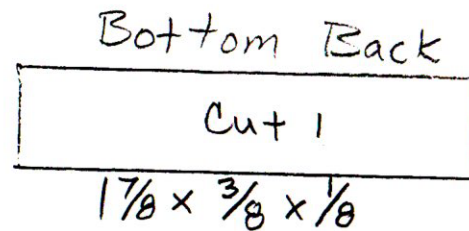 Bottom Back
Cut 1
1 7/8 x 3/8 x 1/8